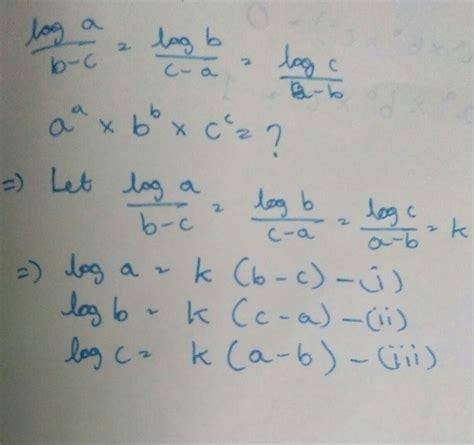 log a / b-c = log b / c-a = log c / a-b
a^a × b^b × c^c = ?
=) Let log a / b-c = log b / c-a = log c / a-b = k
=) log a = k (b-c) - i)
log b = k (c-a) - (ii)
log c = k (a-b) - (iii)